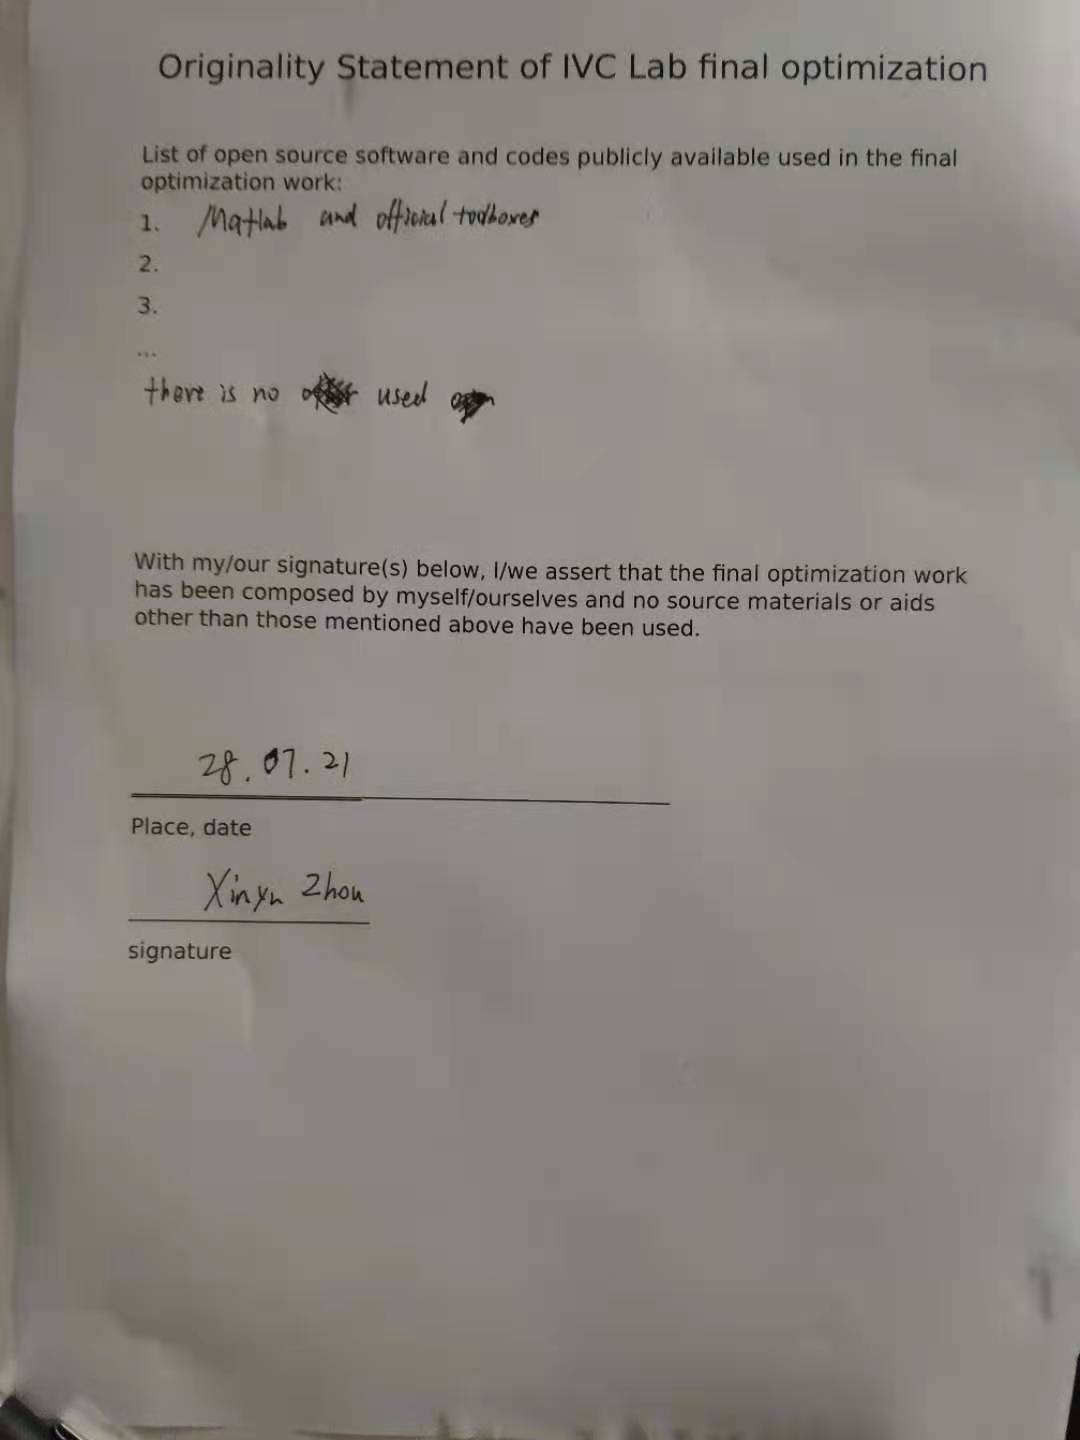 Originality Statement of IVC Lab final optimization
List of open source software and codes publicly available used in the final
optimization work:
1. Matlab and official toolboxes
2.
3.
...
there is no used
With my/our signature(s) below, I/we assert that the final optimization work
has been composed by myself/ourselves and no source materials or aids
other than those mentioned above have been used.
28.07.21
Place, date
Xinyu Zhou
signature